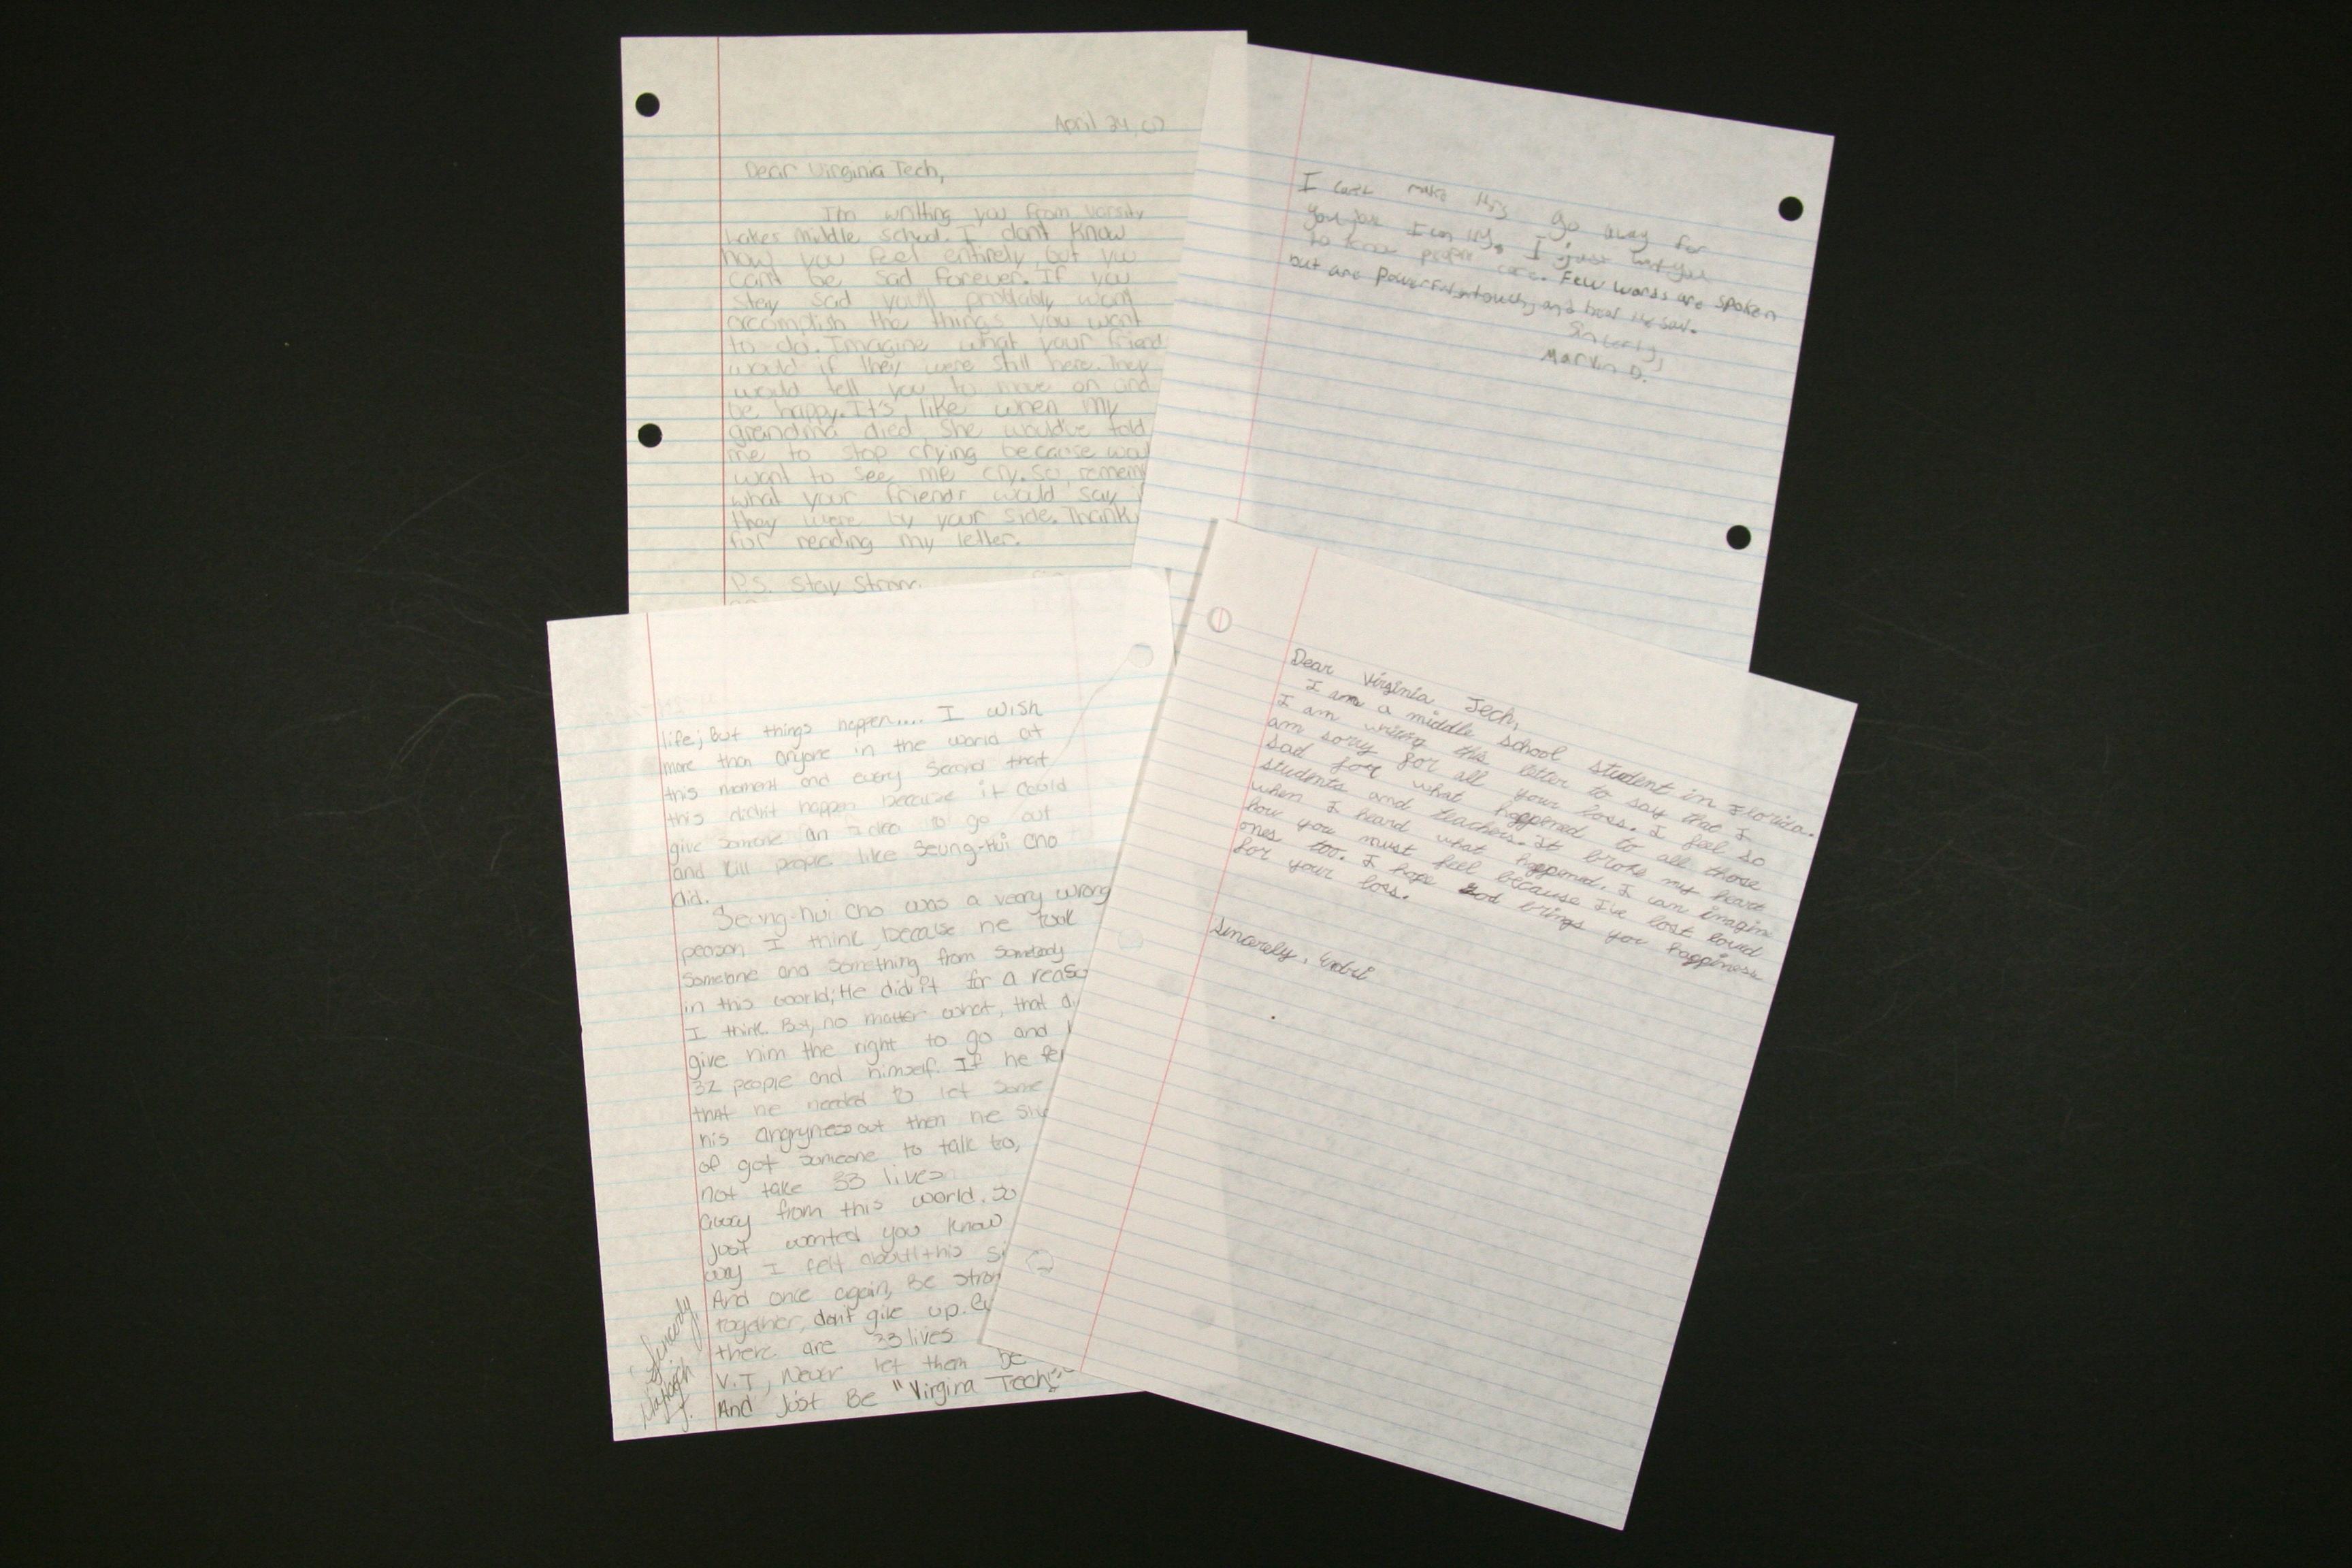 April 24, 07
Dear Virginia Tech,
I'm writting you from Varsity
Lakes Middle School. I don't know
how you feel entirely, but you
can't be sad forever. If you
stay sad you'll probably wont
accomplish the things you want
to do. Imagine what your friend
would if they were still here. They
would tell you to move on and
be happy. It's like when my
grandma died she would've told
me to stop crying because
want to see me cry. So, remem
what your friends would say
they were by your side. Thank
for reading my letter.
P.S. Stay Strong
I can't make this go away for
you but I can try. I just want you
to know people care. Few words are spoken
but are powerful, touch, and heal the soul.
Sincerly,
Marvin D.
life; But things happen.... I wish
more than anyone in the world at
this moment and every second that
this didn't happen because it could
give somone an idea to go out
and kill people like Seung-Hui Cho
did.
Seung-hui Cho was a veary wrong
person I think, because he took
Someone and something from Somebody
in this world; He did it for a reaso
I think. But, no matter what, that
give him the right to go and
32 people and himself. If he
that he needed to let some
his angryness out then he
of got someone to talk to,
not take 33 lives
away from this world. So
just wanted you know
way I felt about this
And once again, Be stron
together, don't give up.
there are 33 lives
V.T, Never let them be
And Just Be "Virgina Tech"
Sincerely,
J.
Dear Virginia Tech,
I am a middle school student in Florida.
I am writing this letter to say that I
am sorry for all your loss. I feel so
sad for what happened to all those
students and teachers. It broke my heart
when I heard what happened. I can imagin
how you must feel because I've lost loved
ones too. I hope God brings you happiness
for your loss.
Sincerely,